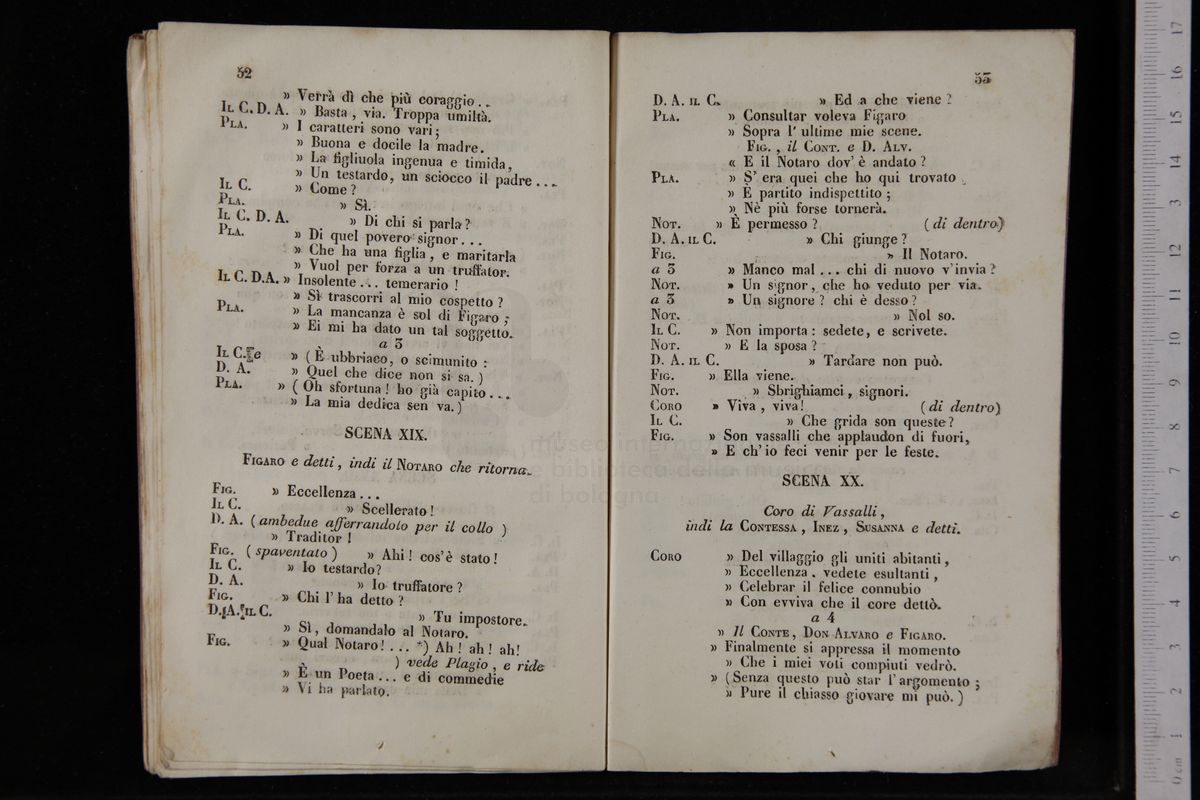 52
» Verrà dì che più coraggio . .
IL C. D. A. » Basta , via. Troppa umiltà.
PLA. » I caratteri sono vari ;
» Buona e docile la madre.
» La figliuola ingenua e timida,
» Un testardo, un sciocco il padre . . .
IL C. » Come ?
PLA. » Sì.
IL C. D. A. » Di chi si parla ?
PLA. » Di quel povero signor . . .
» Che ha una figlia , e maritarla
» Vuol per forza a un truffator.
IL C. D.A. » Insolente . . . temerario !
» Sì trascorri al mio cospetto ?
PLA. » La mancanza è sol di Figaro ;
» Ei mi ha dato un tal soggetto.
a 3
IL C. e » ( È ubbriaco, o scimunito :
D. A. » Quel che dice non si sa. )
PLA. » ( Oh sfortuna ! ho già capito . . .
» La mia dedica sen va. )
SCENA XIX.
FIGARO e detti , indi il NOTARO che ritorna.
FIG. » Eccellenza . . .
IL C. » Scellerato !
D. A. ( ambedue afferrandolo per il collo )
» Traditor !
FIG. ( spaventato ) » Ahi ! cos'è stato !
IL C. » Io testardo?
D. A. » Io truffatore ?
FIG. » Chi l' ha detto ?
D. A. IL C. » Tu impostore.
» Sì, domandalo al Notaro.
FIG. » Qual Notaro ! . . . *) Ah ! ah ! ah!
) vede Plagio , e ride
» È un Poeta . . . e di commedie
» Vi ha parlato.
53
D. A. IL C. » Ed a che viene ?
PLA. » Consultar voleva Figaro
» Sopra l' ultime mie scene.
FIG. , il CONT. e D. ALV.
« E il Notaro dov' è andato ?
PLA. » S' era quei che ho qui trovato
» È partito indispettito ;
» Nè più forse tornerà.
NOT. » È permesso ? ( di dentro )
D. A. IL C. » Chi giunge ?
FIG. » Il Notaro.
a 3 » Manco mal . . . chi di nuovo v'invia ?
NOT. » Un signor, che ho veduto per via.
a 3 » Un signore ? chi è desso ?
NOT. » Nol so.
IL C. » Non importa : sedete, e scrivete.
NOT. » E la sposa ?
D. A. IL C. » Tardare non può.
FIG. » Ella viene.
NOT. » Sbrighiamci, signori.
CORO » Viva , viva! ( di dentro )
IL C. » Che grida son queste ?
FIG. » Son vassalli che applaudon di fuori,
» E ch' io feci venir per le feste.
SCENA XX.
Coro di Vassalli ,
indi la CONTESSA , INEZ , SUSANNA e detti.
CORO » Del villaggio gli uniti abitanti ,
» Eccellenza , vedete esultanti ,
» Celebrar il felice connubio
» Con evviva che il core dettò.
a 4
» Il CONTE, DON ALVARO e FIGARO.
» Finalmente si appressa il momento
» Che i miei voti compiuti vedrò.
» ( Senza questo può star l' argomento ;
» Pure il chiasso giovare mi può. )
museo internaz
e biblioteca della musica
di bologna
0 cm 1 2 3 4 5 6 7 8 9 10 11 12 13 14 15 16 17